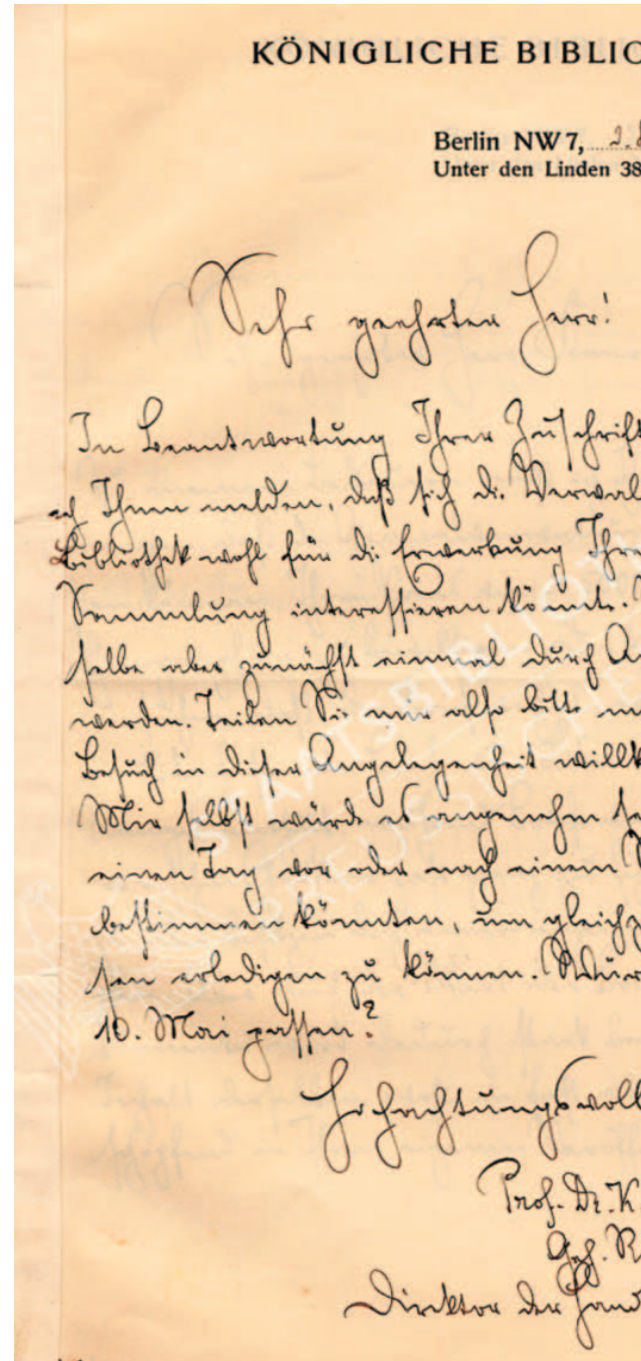 KÖNIGLICHE BIBLIO
Berlin NW 7, 2.
Unter den Linden 38
Sehr geehrter Herr!
In Beantwortung Ihrer Zuschrift
ich Ihnen melden, daß sich die Verwal
Bibliothek wohl für die Erwerbung Ihre
Sammlung interessieren könnte.
selbe aber zunächst einmal durch Au
werden. Teilen Sie mir also bitte mi
Besuch in dieser Angelegenheit willk
Mir selbst würde es angenehm se
einen Tag vor oder nach einem
bestimmen könnten, um gleichz
sen erledigen zu können. Wür
10. Mai passen?
Hochachtungsvoll
Prof. Dr. K
Geh. R
Direktor der Hand
STAATSBIBLIOTH
PREUSSISCHE